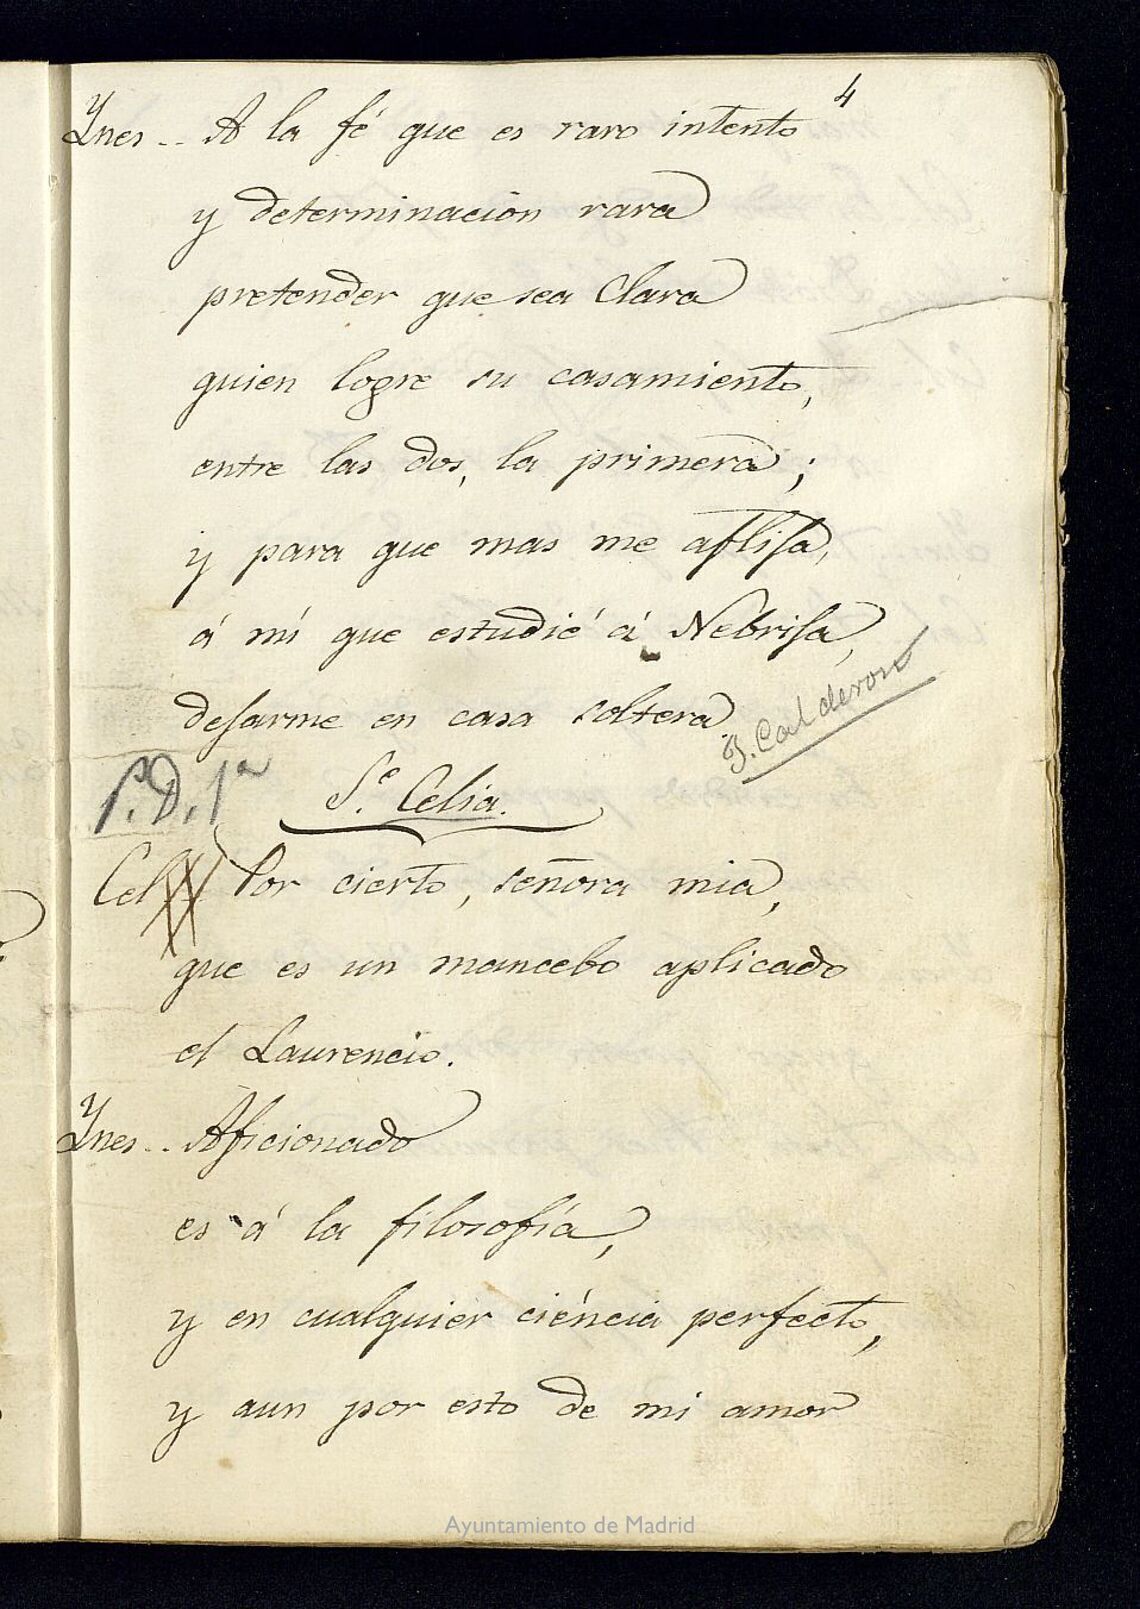 4
Ynes -- A la fé que es raro intento
y determinacion rara
pretender que sea Clara
quien logre su casamiento,
entre las dos, la primera;
y para que mas me aflija,
á mí que estudié á Nebrija,
dejarme en casa soltera.
J. Calderon
P.D. 1ª
Sᵉ Celia.
Cel Por cierto, señora mia,
que es un mancebo aplicado
el Laurencio.
Ynes -- Aficionado
es á la filosofía,
y en cualquier ciéncia perfecto,
y aun por esto de mi amor
Ayuntamiento de Madrid